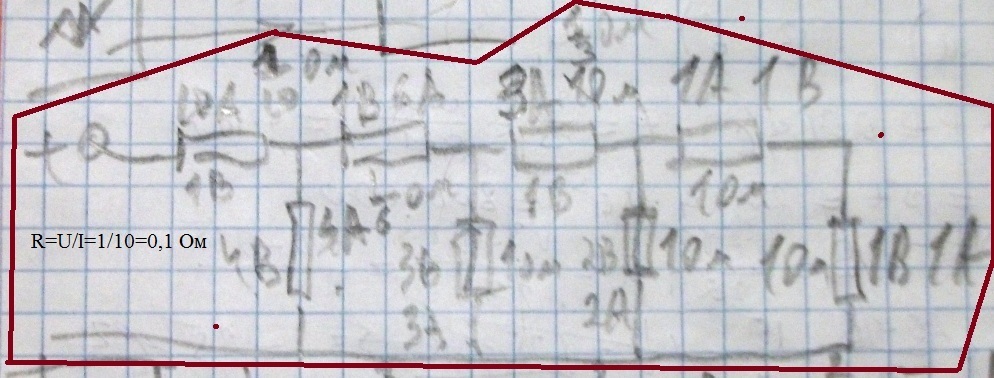 10А 1/10 Ом 1В 6А 3А 1А 1В
+
1В 1/6 Ом 1В 1Ом
R=U/I=1/10=0,1 Ом
4В 4А 3В 1Ом 2В 1Ом 1Ом 1В 1А
3А 2А